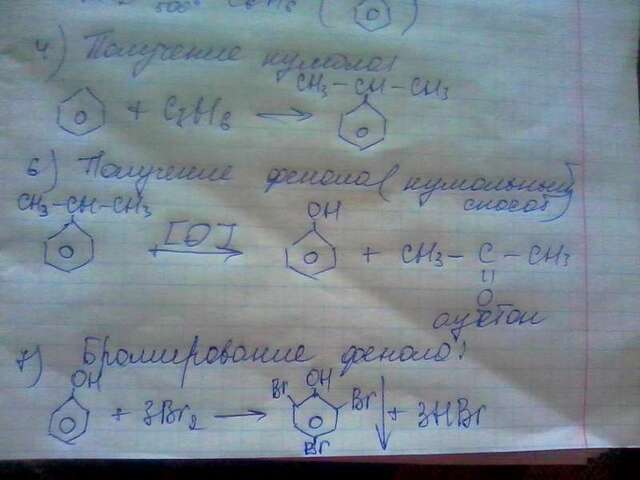 500° C6H6
4) Получение кумола:
CH3-CH-CH3
+ C3H6
6) Получение фенола (кумольный
способ)
CH3-CH-CH3
OH
[O]
+ CH3-C-CH3
O
ацетон
7) Бромирование фенола:
OH
OH
Br Br
+ 3Br2 → + 3HBr
Br